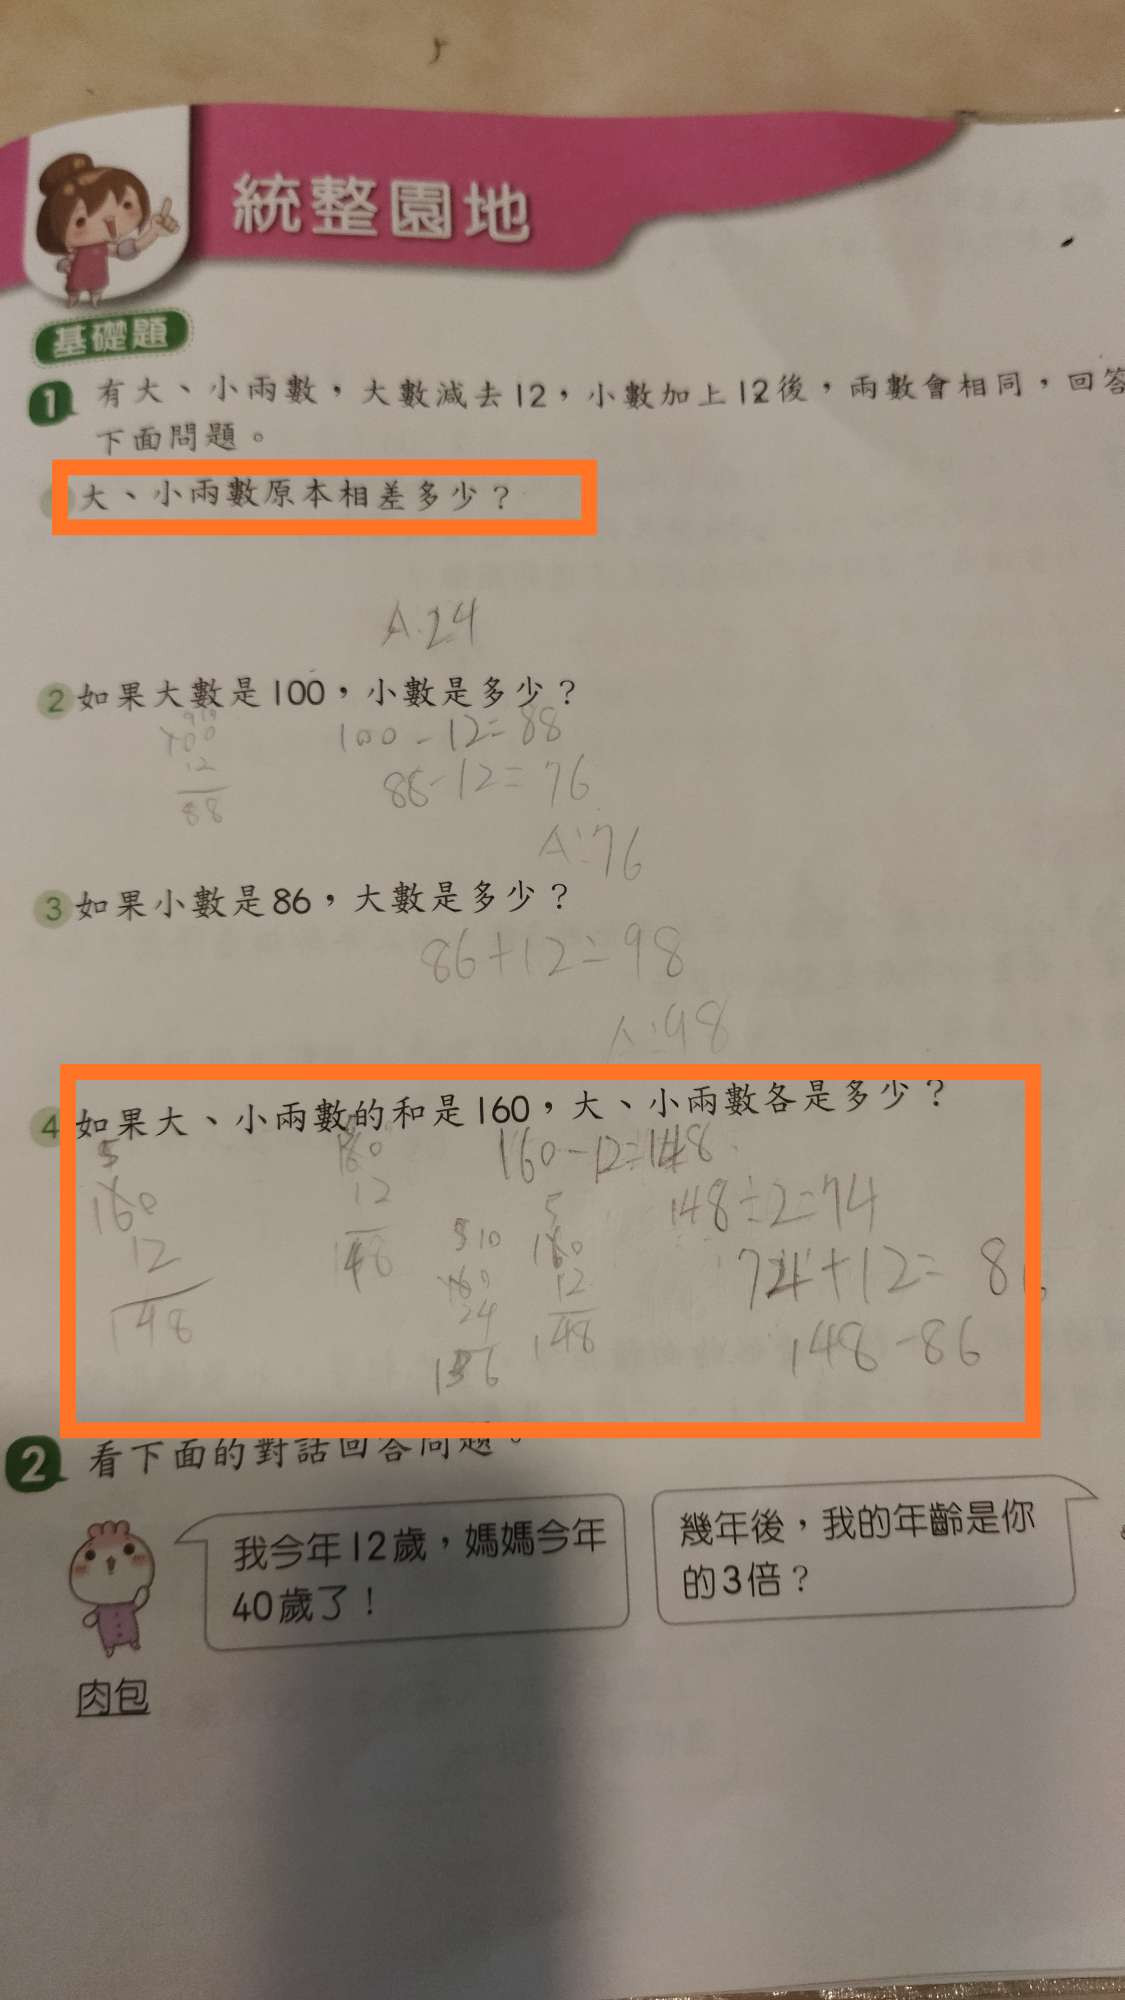 統整園地
基礎題
1 有大、小兩數，大數減去12，小數加上12後，兩數會相同，回答
下面問題。
大、小兩數原本相差多少？
A.24
2 如果大數是100，小數是多少？
100-12=88
12
88
88-12=76
A:76
3 如果小數是86，大數是多少？
86+12=98
A:98
4 如果大、小兩數的和是160，大、小兩數各是多少？
5
160
12
148
160
12
148
160-12=148
148÷2=74
5 10
160
24
136
5
160
12
148
74+12=
148-86
2 看下面的對話回答問題。
我今年12歲，媽媽今年
40歲了！
幾年後，我的年齡是你
的3倍？
肉包